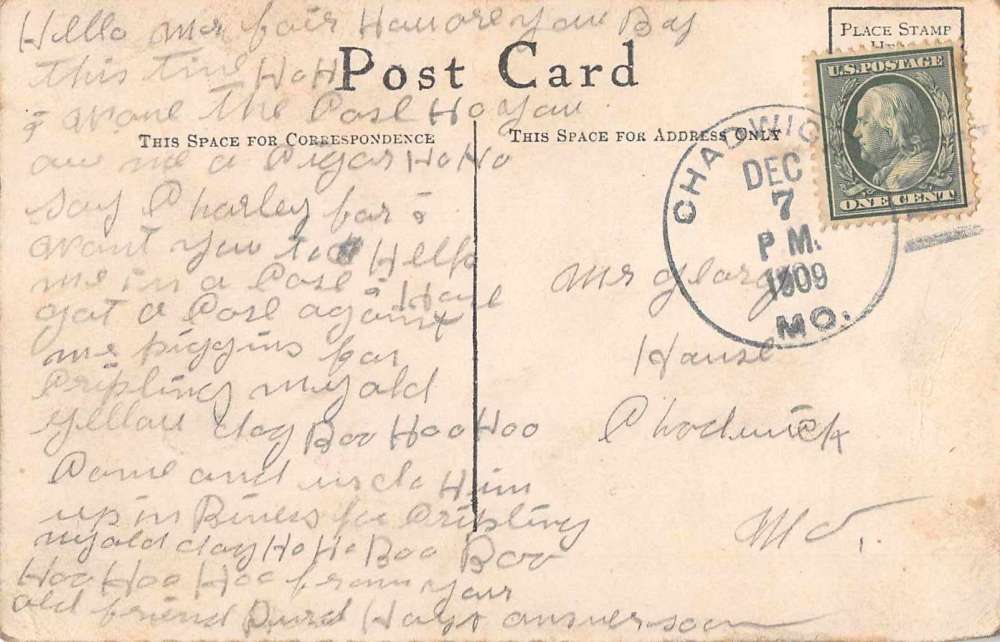 Hello Mr fair How are you Boy
this time Ho H
I wone the Case Ho you
ow me a Cigar Ho Ho
say Charley far I
want you too Help
me in a Case I Have
got a Case against
me piggins far
Cripling my old
yellow dog Boo Hoo Hoo
Come and Him
up in Biness for Cripling
my old dog Ho Ho Boo Boo
Hoo Hoo Hoo from your
old friend Hays answer soon
Post Card
THIS SPACE FOR CORRESPONDENCE
THIS SPACE FOR ADDRESS ONLY
PLACE STAMP
U.S. POSTAGE
ONE CENT
CHADWIC
DEC
7
P M.
1909
MO.
Mr George
House
Chadwick
Mo.